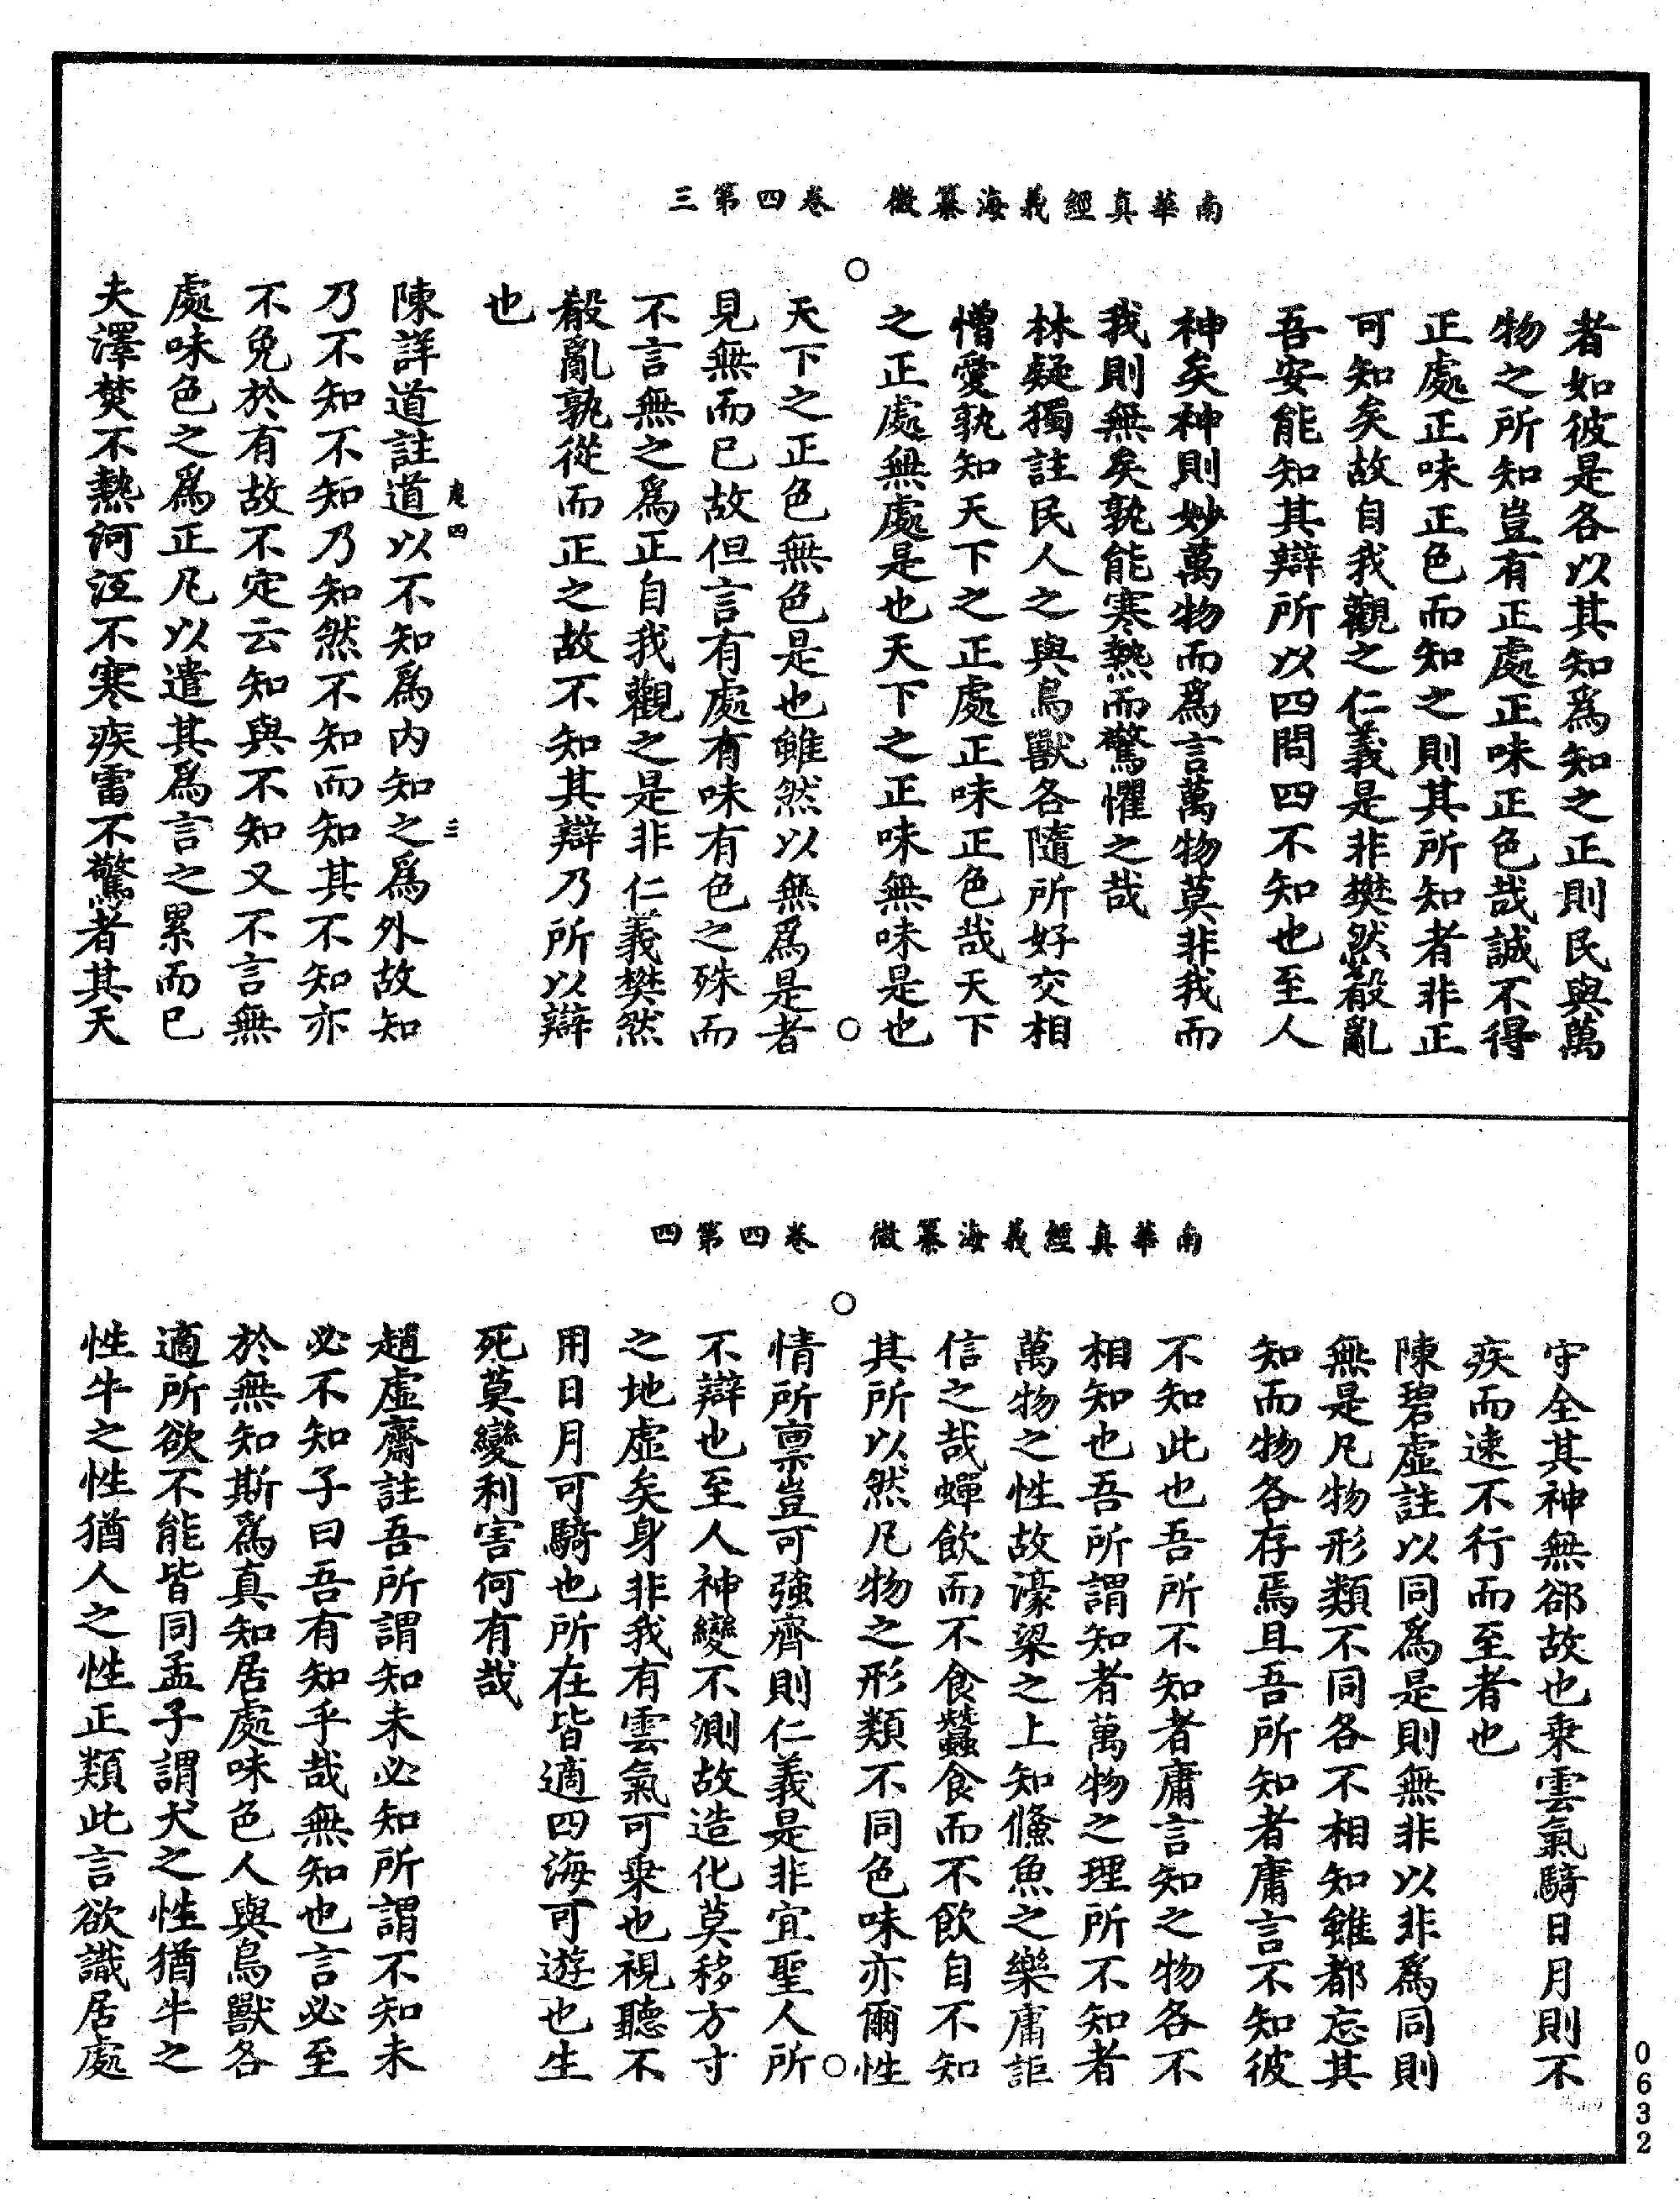 南華真經義海纂微　卷四第三
者如彼是各以其知爲知之正則民與萬
物之所知豈有正處正味正色哉誠不得
正處正味正色而知之則其所知者非正
可知矣故自我觀之仁義是非樊然殽亂
吾安能知其辯所以四問四不知也至人
神矣神則妙萬物而爲言萬物莫非我而
我則無矣孰能寒熱而驚懼之哉
林疑獨註民人之與鳥獸各隨所好交相
憎愛孰知天下之正處正味正色哉天下
之正處無處是也天下之正味無味是也
天下之正色無色是也雖然以無爲是者
見無而已故但言有處有味有色之殊而
不言無之爲正自我觀之是非仁義樊然
殽亂孰從而正之故不知其辯乃所以辯
也
陳詳道註道以不知爲內知之爲外故知
乃不知不知乃知然不知而知其不知亦
不免於有故不定云知與不知又不言無
處味色之爲正凡以遣其爲言之累而已
夫澤焚不熱河沍不寒疾雷不驚者其天
南華真經義海纂微　卷四第四
守全其神無郤故也乘雲氣騎日月則不
疾而速不行而至者也
陳碧虛註以同爲是則無非以非爲同則
無是凡物形類不同各不相知雖都忘其
知而物各存焉且吾所知者庸言不知彼
不知此也吾所不知者庸言知之物各不
相知也吾所謂知者萬物之理所不知者
萬物之性故濠梁之上知鯈魚之樂庸詎
信之哉蟬飲而不食蠶食而不飲自不知
其所以然凡物之形類不同色味亦爾性
情所禀豈可強齊則仁義是非宜聖人所
不辯也至人神變不測故造化莫移方寸
之地虛矣身非我有雲氣可乘也視聽不
用日月可騎也所在皆適四海可遊也生
死莫變利害何有哉
趙虛齋註吾所謂知未必知所謂不知未
必不知子曰吾有知乎哉無知也言必至
於無知斯爲真知居處味色人與鳥獸各
適所欲不能皆同孟子謂犬之性猶牛之
性牛之性猶人之性正類此言欲識居處
0632